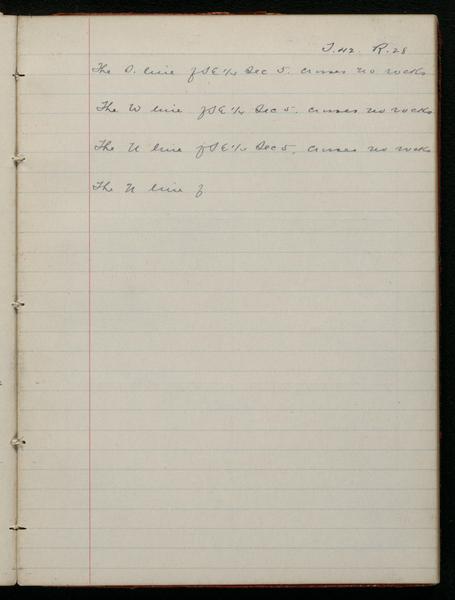 T.42 R.28
The S. line of SE 1/4 Sec 5. crosses no rocks
The W line of SE 1/4 Sec 5. crosses no rocks
The N line of SE 1/4 Sec 5. crosses no rocks
The N line of